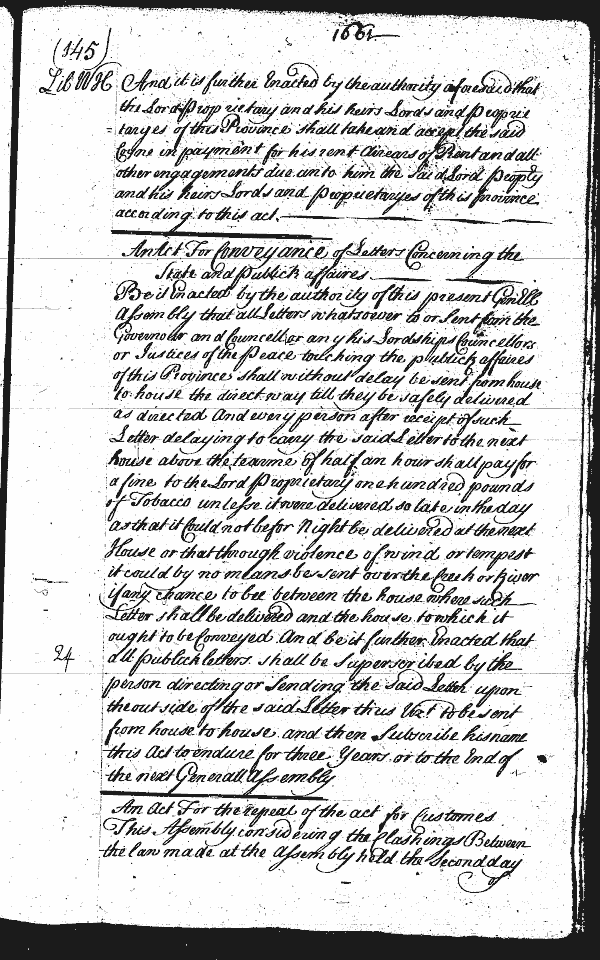 1661
(145)
Lib W H And it is further Enacted by the authority aforesaid that
the Lord Proprietary and his heirs Lords and Proprie
taryes of this Province shall take and accept the said
Coyne in payment for his rent Arrears of Rent and all
other engagements due unto him the said Lord Propty
and his heirs Lords and Proprietaryes of this Province
according to this act.
An Act For Conveyance of Letters Concerning the
State and Publick affaires
Be it Enacted by the authority of this present Genll
Assembly that all Letters whatsoever to or Sent from the
Governour and Councell or any his Lordships Councellors
or Justices of the Peace touching the publick affaires
of this Province shall without delay be sent from house
to house the direct way till they be safely delivered
as directed And every person after receipt of such
Letter delaying to carry the said Letter to the next
house above the tearme of half an hour shall pay for
a fine to the Lord Proprietary one hundred pounds
of Tobacco unlesse it were delivered so late in the day
as that it Could not befor Night be delivered at the next
House or that through violence of wind or tempest
it could by no means be sent over the Creek or River
if any chance to bee between the house where such
Letter shall be delivered and the house to which it
ought to be Conveyed And be it further Enacted that
24
all publick letters shall be Superscribed by the
person directing or Sending the said Letter upon
the outside of the said Letter thus Vizt to be sent
from house to house and then Subscribe his name
this Act to endure for three Years or to the End of
the next Generall Assembly
An Act For the repeal of the act for Customes
This Assembly considering the Clashings Between
the law made at the Assembly held the Second day
of